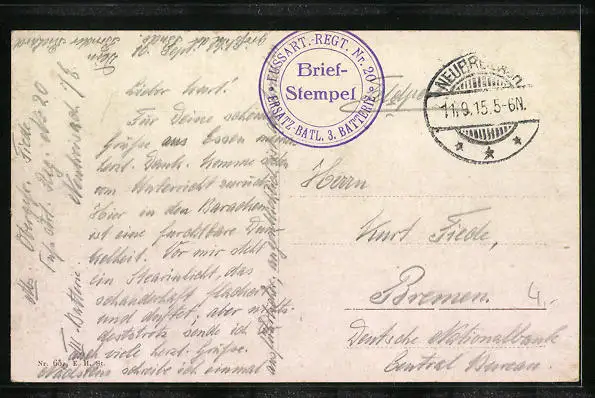 Lieber Kurt!
Für Deine schönen
Grüße aus Essen meinen
herzl. Dank. Komme eben
vom Unterricht zurück.
Hier in den Baracken
ist eine furchtbare Dun-
kelheit. Vor mir steht
ein Stearinlicht, das
schauderhaft flackert
und duftet, aber nichts-
destotrotz sende ich
Euch viele herzl. Grüße.
Nächstens schreibe ich einmal
ausführlicher,
Abs. Obergefr. Fiede
Fußart. Reg. No 20
Neubreisach i/E
III Batterie
FUSSART.-REGT. Nr. 20
Brief-
Stempel
ERSATZ-BATL. 3. BATTERIE
Feldpost
NEUBREISACH
11.9.15.5-6N.
Herrn
Kurt Fiede,
Bremen.
Deutsche Nationalbank
Central Bureau.
4.-